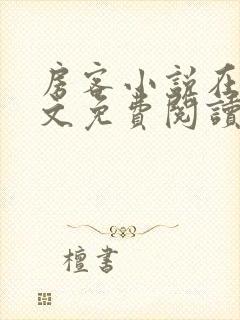 房客小说在
文免費閱讀
檀書